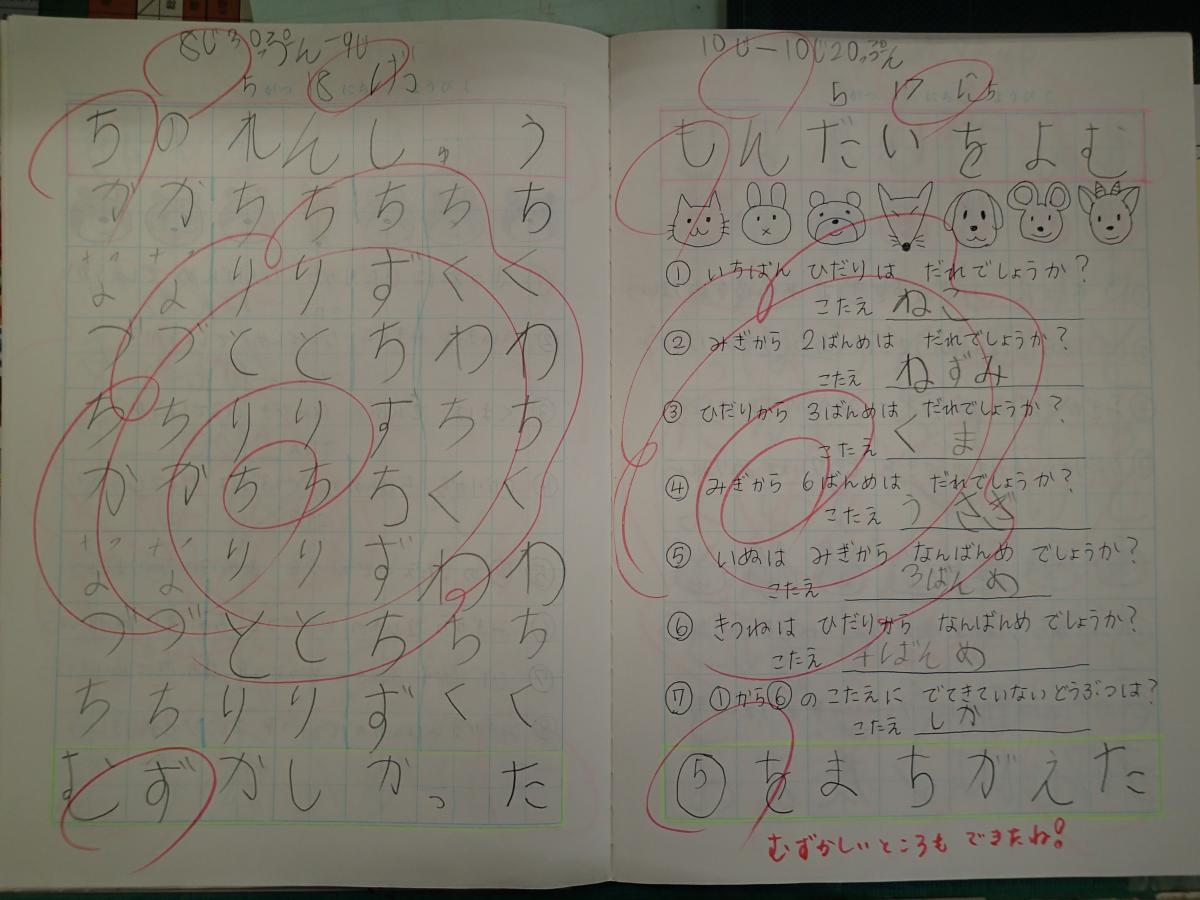 8じ30ぷん-9じ
5 18 げつ
ちのれんしゅう
ががちちちちち
りりずくく
づづととちわわ
ちちりりすちち
かがちちちくく
りりずわわ
づづととちちち
ちちりりずくく
むずかしかった
10じ-10じ20ぷん
5 17 にち
もんだいをよむ
① いちばん ひだりは だれでしょうか?
こたえ ねこ
② みぎから 2ばんめは だれでしょうか?
こたえ ねずみ
③ ひだりから 3ばんめは だれでしょうか?
こたえ くま
④ みぎから 6ばんめは だれでしょうか?
こたえ うさぎ
⑤ いぬは みぎから なんばんめ でしょうか?
こたえ 3ばんめ
⑥ きつねは ひだりから なんばんめ でしょうか?
こたえ 4ばんめ
⑦ ①から⑥のこたえに でてきていないどうぶつは?
こたえ しか
⑤をまちがえた
むずかしいところも できたね!